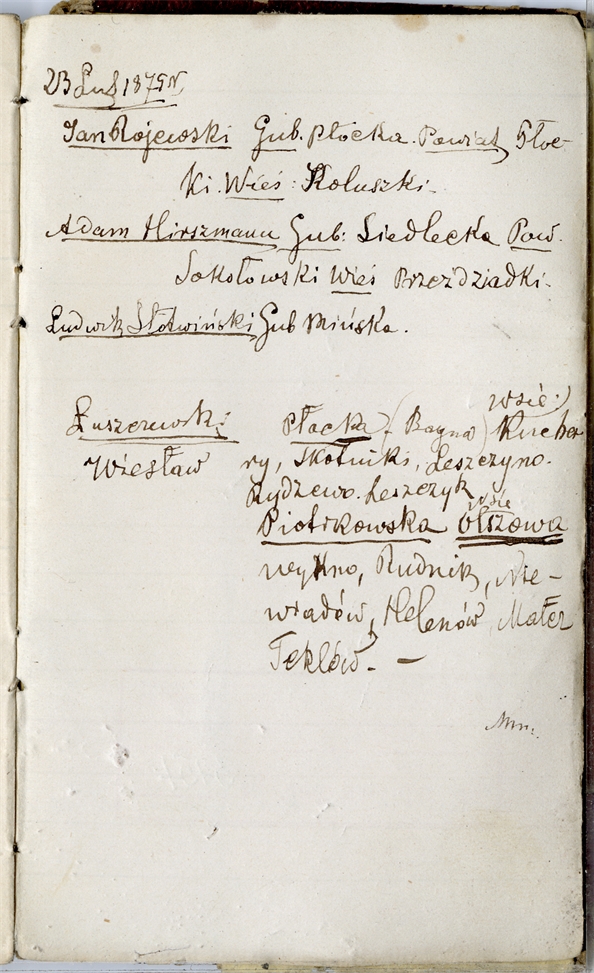 23 Lut 1875 r.
Jan Rojewski Gub. płocka. Powiat Płoc-
ki. Wieś: Koluszki.
Adam Hirszmann Gub: Siedlecka Pow.
Sokołowski Wieś Brzeździadki.
Ludwik Słotwiński Gub Mińska.
wsie:)
Łuszczewski Płacka (Bagno) Kucher
Wiesław ry, Skotniki, Leszczyno.
Rydzewo. Leszczyk
wsie
Piotrkowska Olszowa
wykno, Rudnik, Nie-
wiadów, Helenów, Małcz
Teklów. —